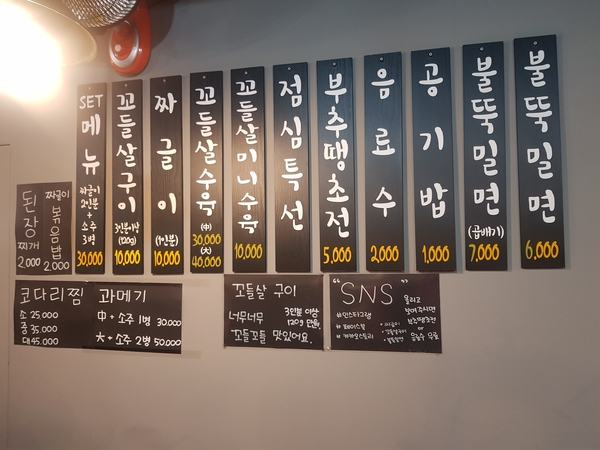 SET
메뉴
짜글이
2인분
+
소주
3병
30,000
꼬들살구이
3인분이상
(120g)
10,000
짜글이
(1인분)
10,000
꼬들살수육
(中)
30,000
(大)
40,000
꼬들살미니수육
10,000
점심특선
부추땡초전
5,000
음료수
2,000
공기밥
1,000
불뚝밀면
(곱배기)
7,000
불뚝밀면
6,000
된장
찌개
2,000
짜글이
볶음밥
2,000
코다리찜
소 25,000
중 35,000
대 45,000
과메기
中 + 소주 1병 30,000
大 + 소주 2병 50,000
꼬들살 구이
너무너무
3인분 이상
120g 만원
꼬들꼬들 맛있어요.
"SNS"
#인스타그램
#페이스북
#카카오스토리
올리고
보여주시면
부추땡초전
or
음료수 무료